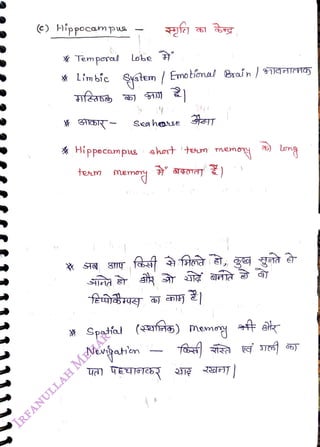 (c) Hippocampus – स्मृति का केन्द्र
* Temporal Lobe में
* Limbic System / Emotional Brain / भावनात्मक
मस्तिष्क का भाग है|
* आकार – Seahorse जैसा
* Hippocampus short term memory को Long
term memory में बदलता है|
* जब आप किसी से मिलते हो, कुछ सुनते हो
जानते हो और जो यादें बनाते हो वो
हिप्पोकैम्पस का काम है|
* Spatial (स्थानिक) memory और
Navigation – किसी रास्ते एवं गली का
पता पहचानकर याद रखना|
IRFANULLAH